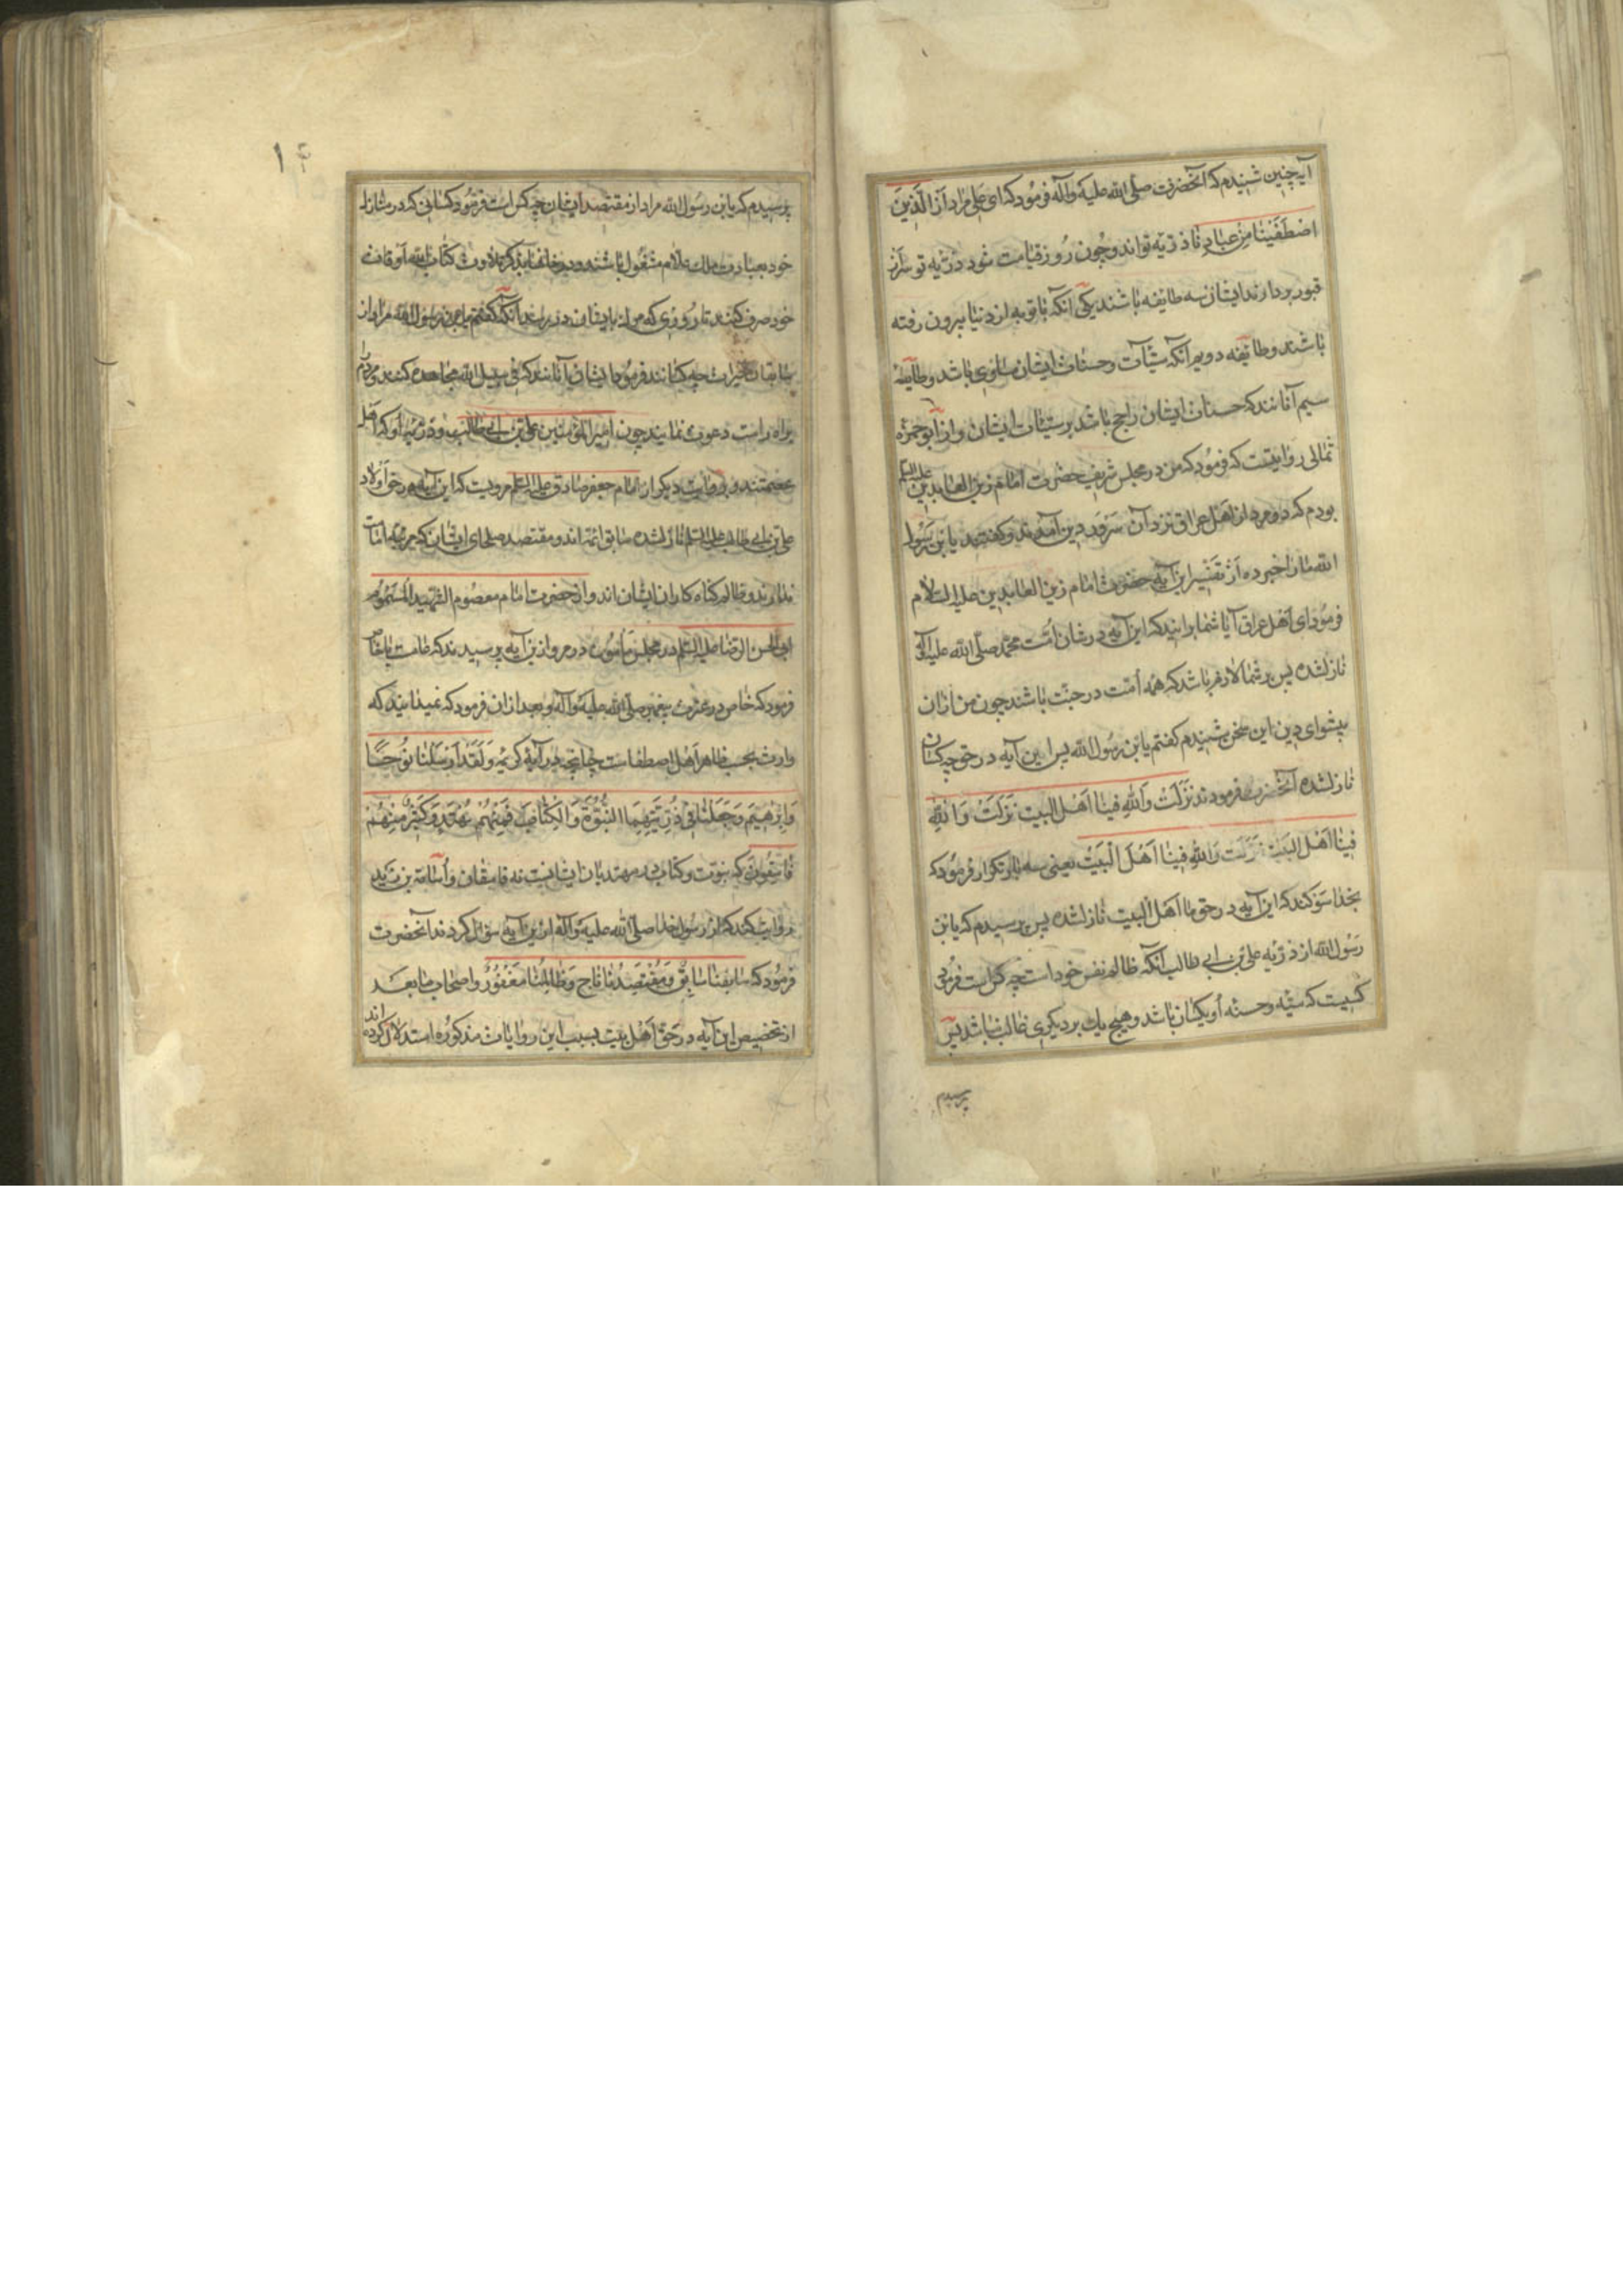 آیه چنین شنیدم که آنحضرت صلی الله علیه وآله فرمود که ای علی مراد از الَّذِینَ
اصْطَفَیْنَا مِنْ عِبَادِنَا ذریّه تو اند و چون روز قیامت شود ذرّیه تو سر از
قبور بردارند ایشان سه طایفه باشند یکی آنکه با توبه از دنیا بیرون رفته
باشند و طایفه دویم آنکه سیّآت و حسنات ایشان مساوی باشد و طایفه
سیم آنانند که حسنات ایشان راجح باشد بر سیّئات ایشان و از ابو حمزه
ثمالی روایتست که فرمود که من در مجلس شریف حضرت امام زین العابدین علیه السلم
بودم که دو مرد از اهل عراق نزد آن سرور دین آمدند و گفتند یا بن رسول
الله ما را خبر ده از تفسیر این آیه حضرت امام زین العابدین علیه السلام
فرمود ای اهل عراق آیا شما برانید که این آیه در شان امّت محمد صلّی الله علیه وآله
نازلشده پس بر شما لازم باشد که همه امّت در جنّت باشند چون من از ان
پیشوای دین این سخن شنیدم گفتم یا بن رسول الله پس این آیه در حق چه کسان
نازلشده آنحضرت فرمودند نَزَلَتْ وَاللهِ فینا اَهْلَ البیت نَزَلَتْ وَاللهِ
فینا اهل البیت نَزَلَت وَاللهِ فینا اَهْلَ الْبَیْت یعنی سه بار تکرار فرمود که
بخدا سوکند که این آیه در حق ما اهل البیت نازلشده پس پرسیدم که یا بن
رسول الله از ذرّیه علی بن ابی طالب آنکه ظالم نفس خود است چه کس است فرمود
کسیست که سیّئه و حسنه او یکسان باشد و هیچ یك بر دیکری غالب نباشد پس
پرسیدم
۱۴
پرسیدم که یا بن رسول الله مراد از مقتصد ایشان چه کس است فرمود کسانی که در منازل
خود بعبادت ملك علام مشغول باشند و در خانها بذکر و تلاوت کتاب الله اوقات
خود صرف کنند تا روزی که مرك بایشان در رسد آنکه گفتم یا بن رسول الله مراد از
سابقان بخیرات چه کسانند فرمود ایشان آنانند که فی سبیل الله مجاهده کنند و مردم را
براه راست دعوت نمایند چون امیر المؤمنین علی بن ابی طالب و ذریّه او که اهل
عصمتند و بروایت دیکر از امام جعفر صادق علیه السلم مرویست که این آیه در حق اولاد
علی بن ابی طالب علیه السلم نازلشده سابق ائمّه اند و مقتصد صلحای ایشان که مرتبه امامت
ندارند و ظالم کناه کاران ایشان اند و از حضرت امام معصوم الشهید المسموم
ابی الحسن الرضا علیه السلم در مجلس مامون در مرو از ین آیه پرسیدند که عامست یا خاص
فرمود که خاص در عترت پیغمبر صلی الله علیه وآله و بعد از ان فرمود که نمیدانید که
وارث بحسب ظاهر اهل اصطفاست چنانچه در آیهٔ کریمهٔ وَلَقَدْ اَرْسَلْنَا نُوحًا
وَاِبْرٰهِیمَ وَجَعَلْنَا فِی ذُرِّیَّتِهِمَا النُّبُوَّةَ وَالْکِتَابَ فَمِنْهُمْ مُهْتَدٍ وَکَثِیرٌ مِنْهُمْ
فَاسِقُونَ که نبوّت و کتاب در مهتدیان ایشانست نه فاسقان و اُسامة بن زید
روایت کند که از رسول خدا صلی الله علیه وآله ازین آیه سؤال کردند آنحضرت
فرمود که سَابِقُنَا سَابِقٌ وَمُقْتَصِدُنَا نَاجٍ وَظَالِمُنَا مَغْفُورٌ و اصحاب ما بعد
از تخصیص این آیه در حق اهل بیت بسبب این روایات مذکوره استدلال کرده اند